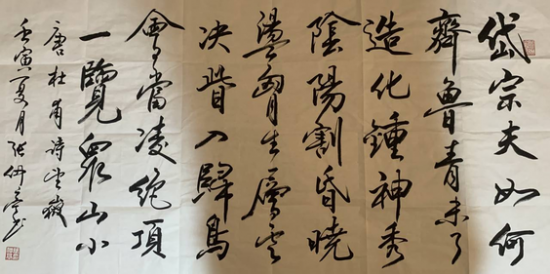 岱宗夫如何
齊魯青未了
造化鍾神秀
陰陽割昏曉
盪胷生層雲
決眥入歸鳥
會當凌絶頂
一覽眾山小
唐杜甫詩望嶽
壬寅夏月張